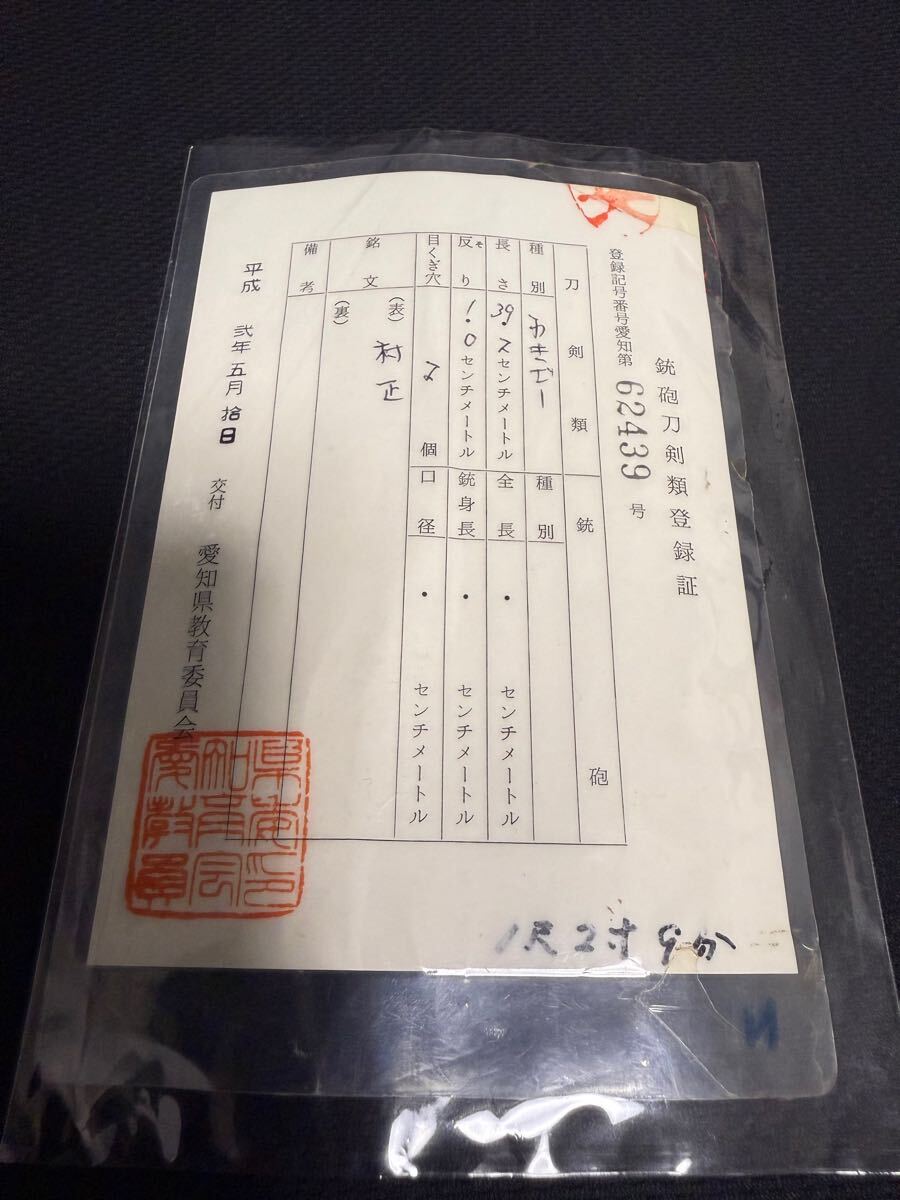 銃砲刀剣類登録証
登録記号番号愛知第 62439 号
刀剣類 銃砲
種別 わきざし 種別
長さ 39.2センチメートル 全長 ・ センチメートル
反り そ 1.0センチメートル 銃身長 ・ センチメートル
目くぎ穴 2 個 口径 ・ センチメートル
銘文 (表) 村正
(裏)
備考
平成 弐年五月拾日 交付 愛知県教育委員会
1尺2寸9分